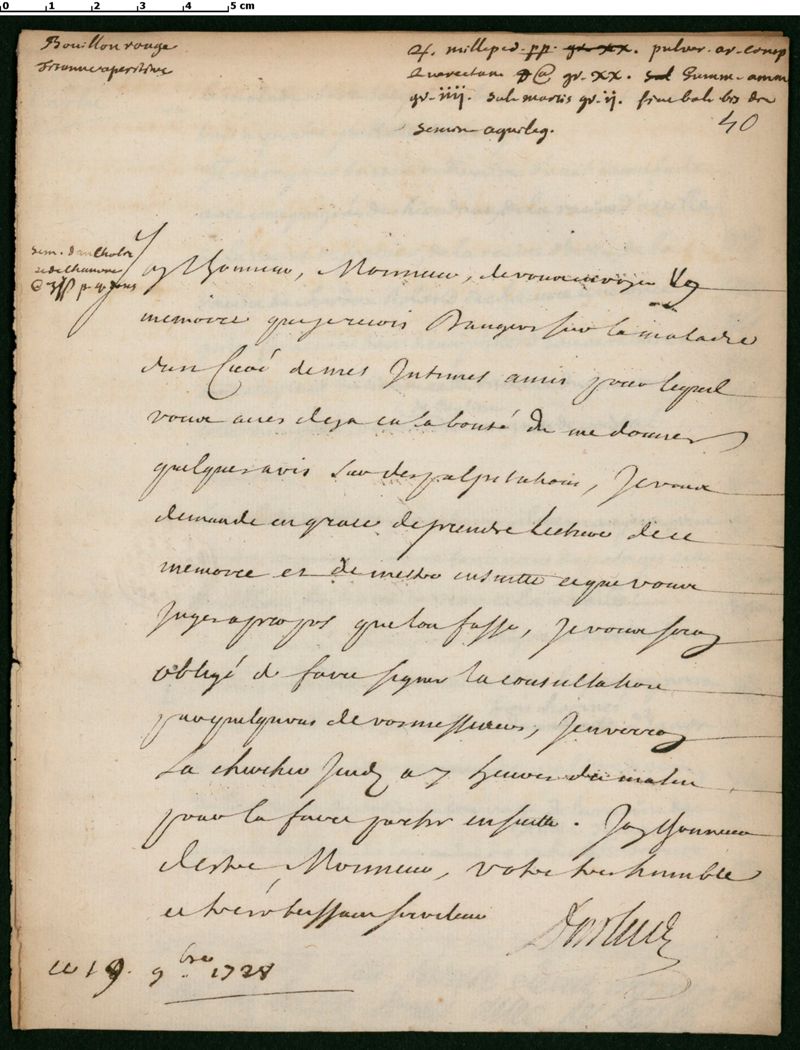 0 1 2 3 4 5 cm
Bouillon rouge
Tisanne aperitive
♃. milleped. pp. gr. xx. pulver. ar-
gr. xx. Gumm. amm
gr. iiij. sal. martis gr. ij. fiant bol. bis die
40
aquileg.
J'ay l'honneur, Monsieur, de vous envoyer Un
memoire que je recois D'angers sur la maladie
d'un Curé de mes Intimes amis pour lequel
vous aves deja eu la bonté de me donner
quelques avis sur des palpitations, Je vous
demande en grace de prendre lecture de ce
memoire et de mettre ensuitte ce que vous
Juges apropos que l'on fasse, Je vous seray
obligé de faire signer la consultation
par quelqu'uns de vos messieurs, J'enverray
La chercher Jeudy a 7 heures du matin
pour la faire partir ensuitte. J'ay l'honneur
d'estre Monsieur, votre tres humble
et trés obeissant serviteur
ce 19. 9bre 1728